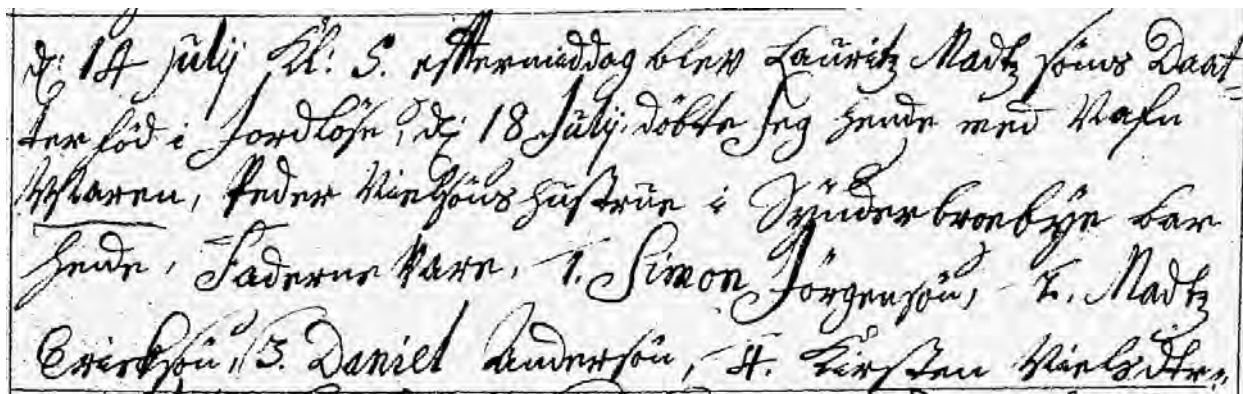 d: 14 Julij Kl: 5. efftermiddag blev Lauritz Madtz söns Daat-
ter föd i Jordlöse, d: 18 Julij döbte Jeg hende med Nafn
Maren, Peder Nielsöns hustrue i Sÿnderbroebÿe bar
hende, Faderne vare, 1. Simon Jörgensön, 2. Madtz
Ericksön, 3. Daniel Andersön, 4. Kirsten Nielsdtr: